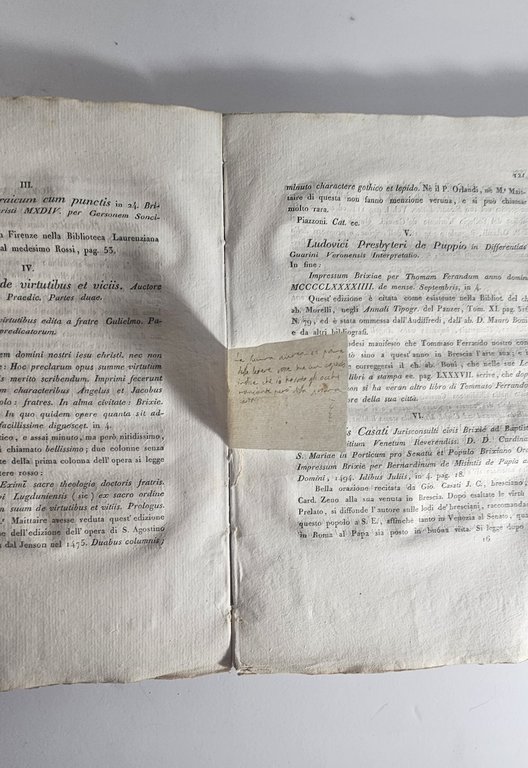 III.
raicum cum punctis in 24. Bri-
risti MXDIV. per Gersonem Sonci-
n Firenze nella Biblioteca Laurenziana
al medesimo Rossi, pag. 53.
IV.
de virtutibus et viciis. Auctore
Praedic. Partes duae.
virtutibus edita a fratre Gulielmo. Pa-
predicatorum.
em domini nostri iesu christi. nec non
: Hoc preclarum opus summe virtutum
is merito scribendum. Imprimi fecerunt
m characteribus Angelus et Jacobus
olo: fratres. In alma civitate: Brixie.
In quo quidem opere quanta sit ad-
facillissime dignoscet. in 4.
tico, e assai minuto, ma però nitidissimo,
i chiamato bellissimo; due colonne senza
te della prima coloma dell'opera si legge
tere rosso:
Eximî sacre theologie doctoris fratris.
i Lugduniensis (sic) ex sacro ordine
n suum de virtutibus et vitiis. Prologus.
. Maittaire avesse veduta quest' edizione
ne dell'edizione dell'opera di S. Agostino
a dal Jenson nel 1475. Duabus columnis;
121
minuto charactere gothico et lepido. Nè il P. Orlandi, nè M.r Mait-
taire di questa non fanno menzione veruna, e si può chiamar
molto rara.
Piazzoni. Cat. ec.
V.
Ludovici Presbyteri de Puppio in Differentias
Guarini Veronensis Interpretatio.
In fine:
Impressum Brixiae per Thomam Ferandum anno domini
MCCCCLXXXXIIII. de mense. Septembris, in 4.
Quest' edizione è citata come esistente nella Bibliot. del
ab. Morelli, negli Annali Tipogr. del Panzer, Tom. XI. pag.
N. 79, ed è stata ommessa dall'Audiffredi, dall'ab. D. Mauro Boni
e da altri bibliografi.
desi manifesto che Tommaso Ferrando nostro con-
tino sino a quest'anno in Brescia l'arte sua; e
correggersi il ch. ab. Boni, che nelle sue
libri a stampa ec. pag. LXXXVII scrive, che dopo
non si ha veran altro libro di Tommaso Ferrando
ore della sua città.
VI.
is Casati Jurisconsulti civis Brixie ad Baptistam
itium Venetum Reverendiss: D. D. Cardinal
S. Mariae in Porticum pro Senatu et Populo Brixiano Ora
Impressum Brixie per Bernardinum de Misintis de Papia a
Domini, 1494. Idibus Juliis, in 4. pag. 18.
Bella orazione recitata da Gio. Casati J. C., bresciano,
Card. Zeno alla sua venuta in Brescia. Dopo esaltate le virtù
Prelato, si diffonde l'autore sulle lodi de' bresciani, raccomandan
questo popolo a S. E., affinche tanto in Venezia al Senato, quan
in Roma al Papa sia posto in buona vista. Si legge dopo
16